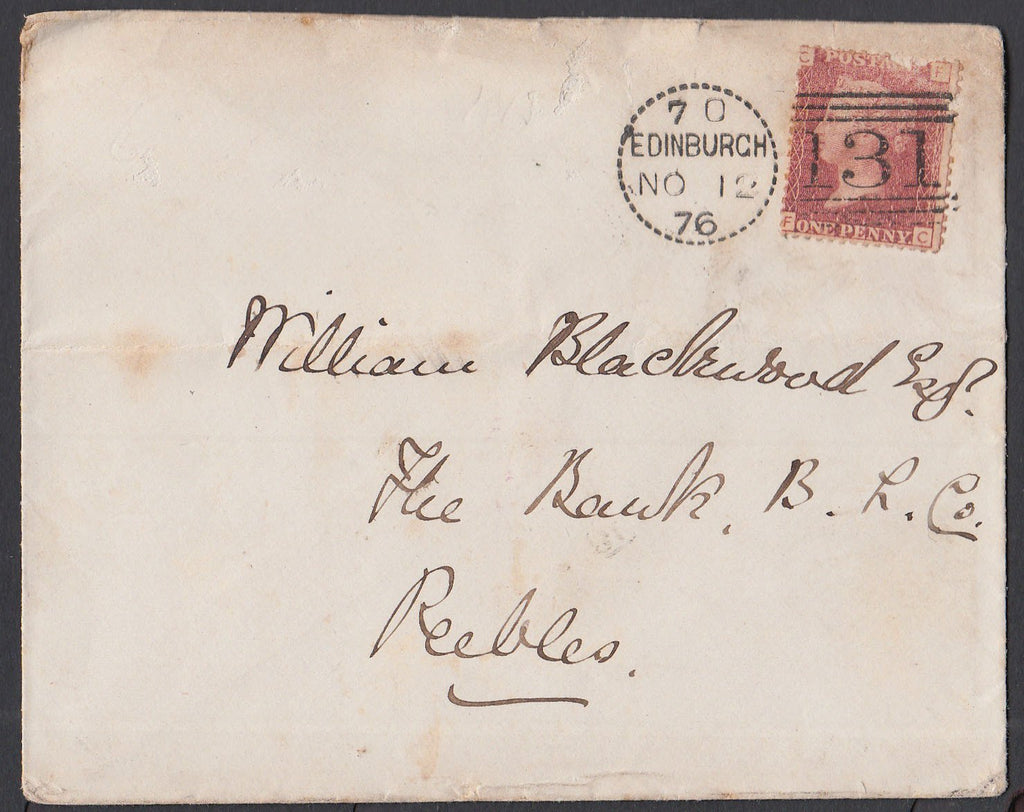 C POSTAGE F
7 O
EDINBURGH
NO 12
76
131
F ONE PENNY C
William Blackwood Esqr.
The Bank. B. L. Co.
Peebles.